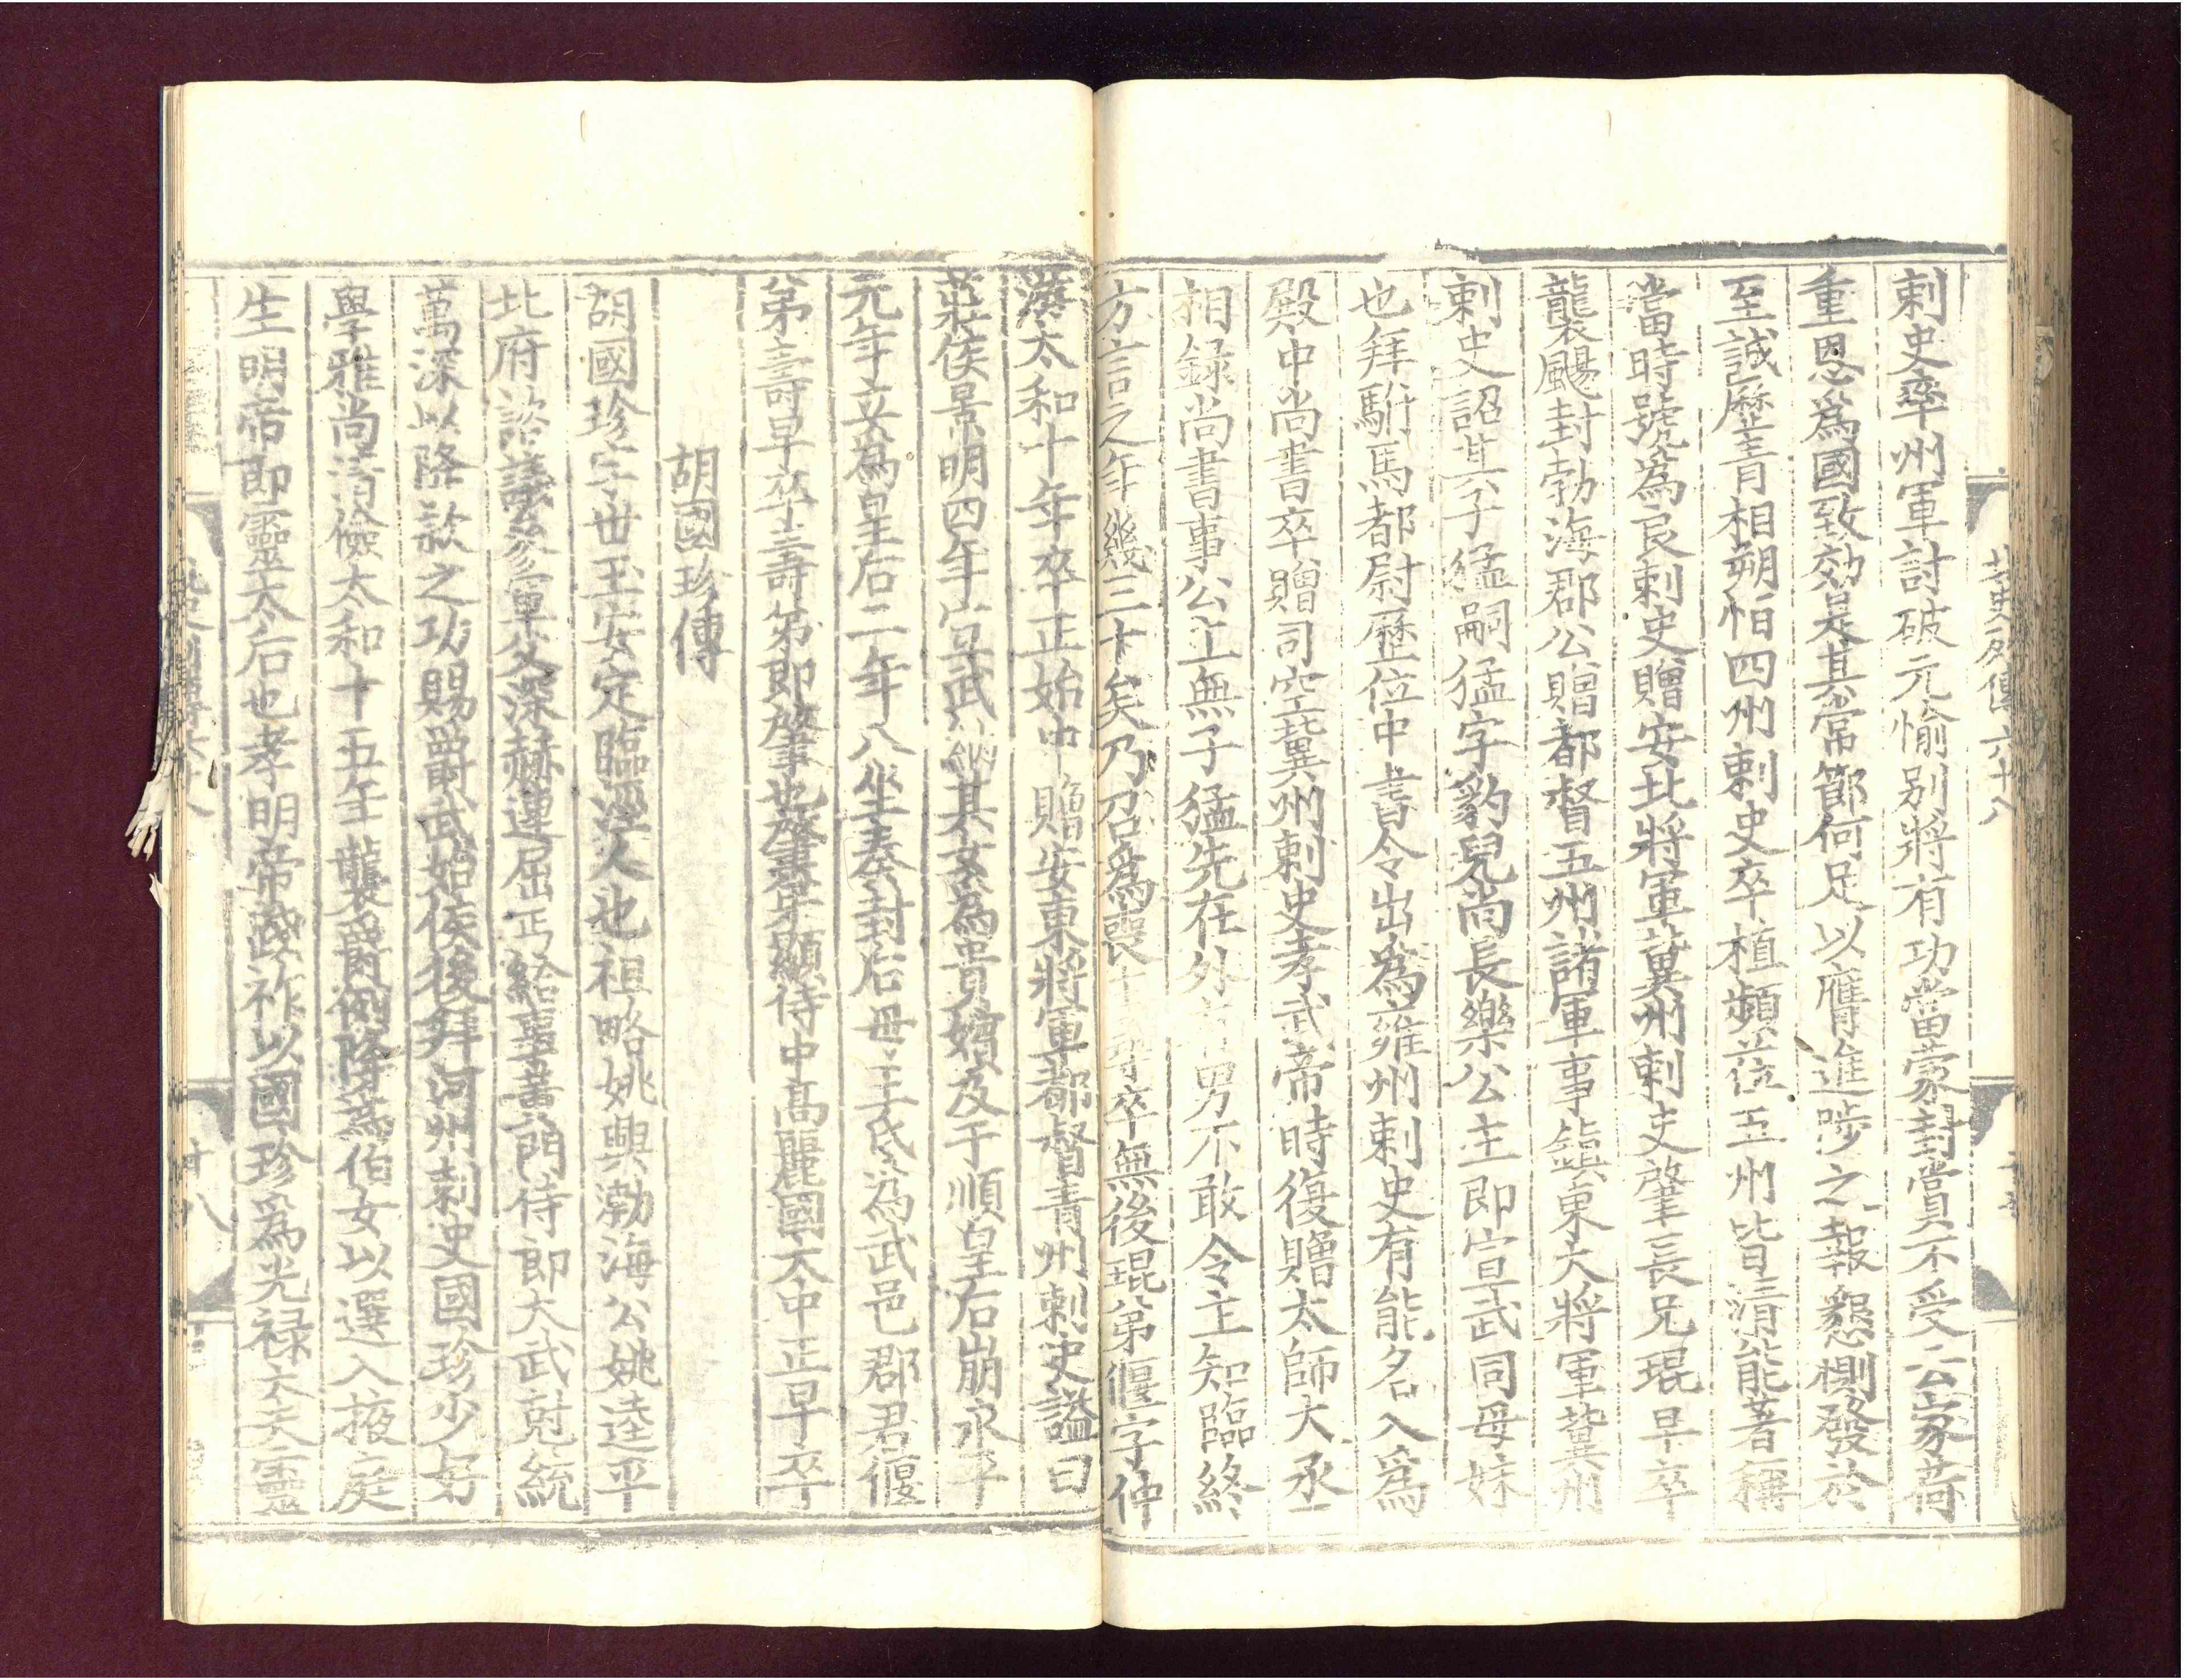 北史列傳六十八
刺史率州軍討破元愉别將有功當蒙封賞不受云家荷
重恩爲國致效是其常節何足以膺進陟之報懇惻發於
至誠歷青相朔恒四州刺史卒植頻莅五州皆清能著稱
當時號爲良刺史贈安北將軍冀州刺史肇長兄琨早卒
襲颺封勃海郡公贈都督五州諸軍事鎮東大將軍冀州
刺史詔其子猛嗣猛字豹兒尚長樂公主即宣武同母妹
也拜駙馬都尉歷位中書令出爲雍州刺史有能名入爲
殿中尚書卒贈司空冀州刺史孝武帝時復贈太師大丞
相録尚書事公主無子猛先在外有男不敢令主知臨終
方言之年幾三十矣乃召爲喪主尋卒無後琨弟偃字仲
游太和十年卒正始中贈安東將軍都督青州刺史謚曰
莊侯景明四年宣武納其女爲貴嬪及于順皇后崩永平
元年立爲皇后二年八坐奏封后母王氏爲武邑郡君偃
弟壽早卒壽弟即肇也肇弟顯侍中高麗國大中正早卒
胡國珍傳
胡國珍字世玉安定臨涇人也祖略姚興渤海公姚逵平
北府諮議參軍父深赫連屈丐給事黃門侍郎太武剋統
萬深以降款之功賜爵武始侯後拜河州刺史國珍少好
學雅尚清儉太和十五年襲爵例降爲伯女以選入掖庭
生明帝即靈太后也孝明帝踐祚以國珍爲光禄大夫靈
十八